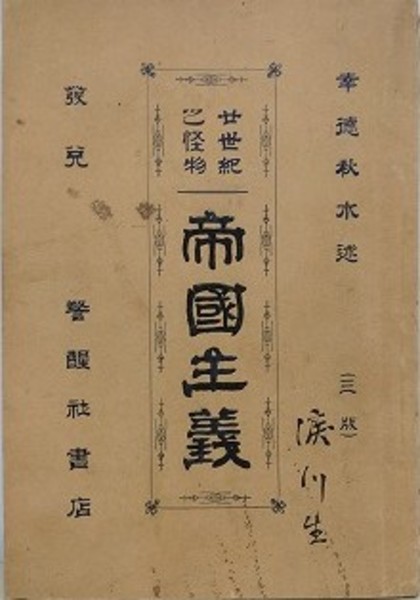 幸德秋水述
(三版)
廿世紀
之怪物
帝國主義
發兌 警醒社書店